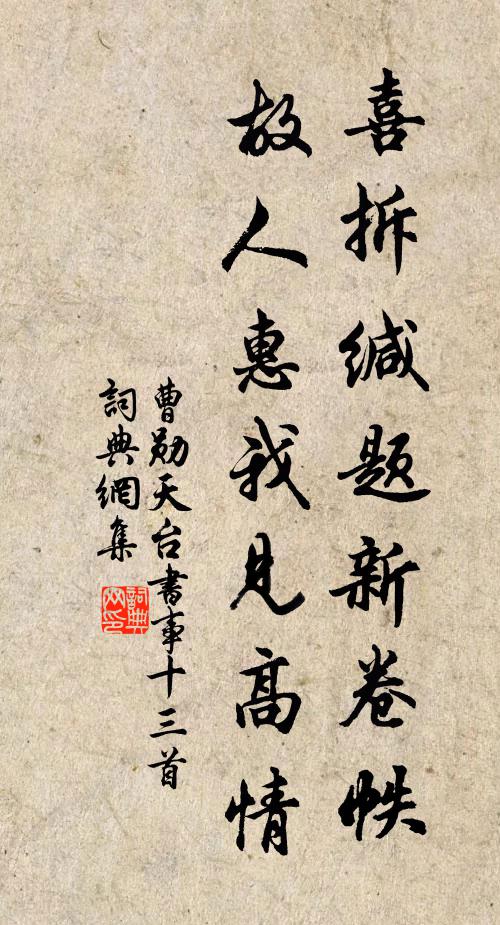 喜拆缄题新卷帙
故人惠我见高情
曹勋天台書事十三首
詞典網集
詞典网印